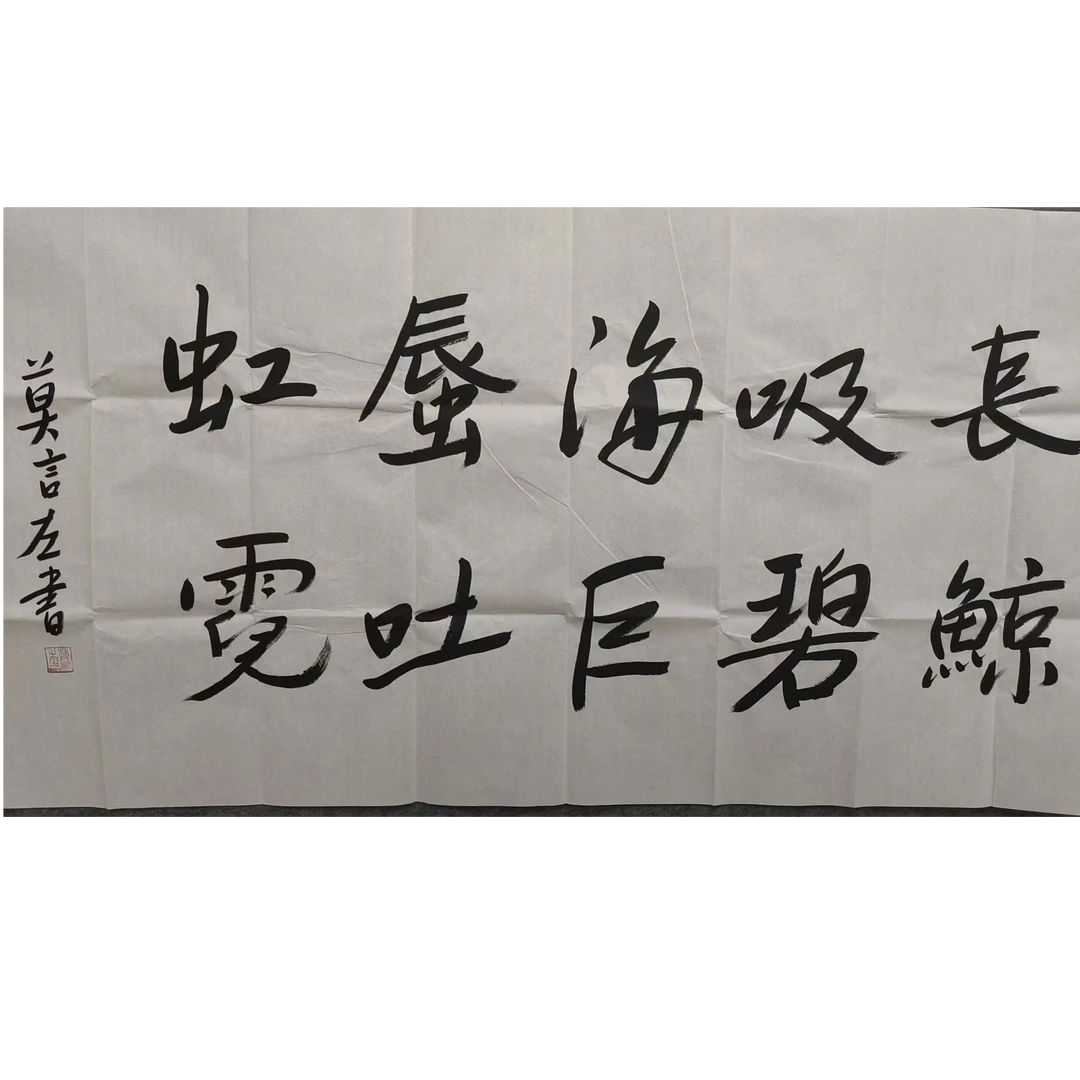 長鯨
吸碧
海巨
蜃吐
虹霓
莫言左書